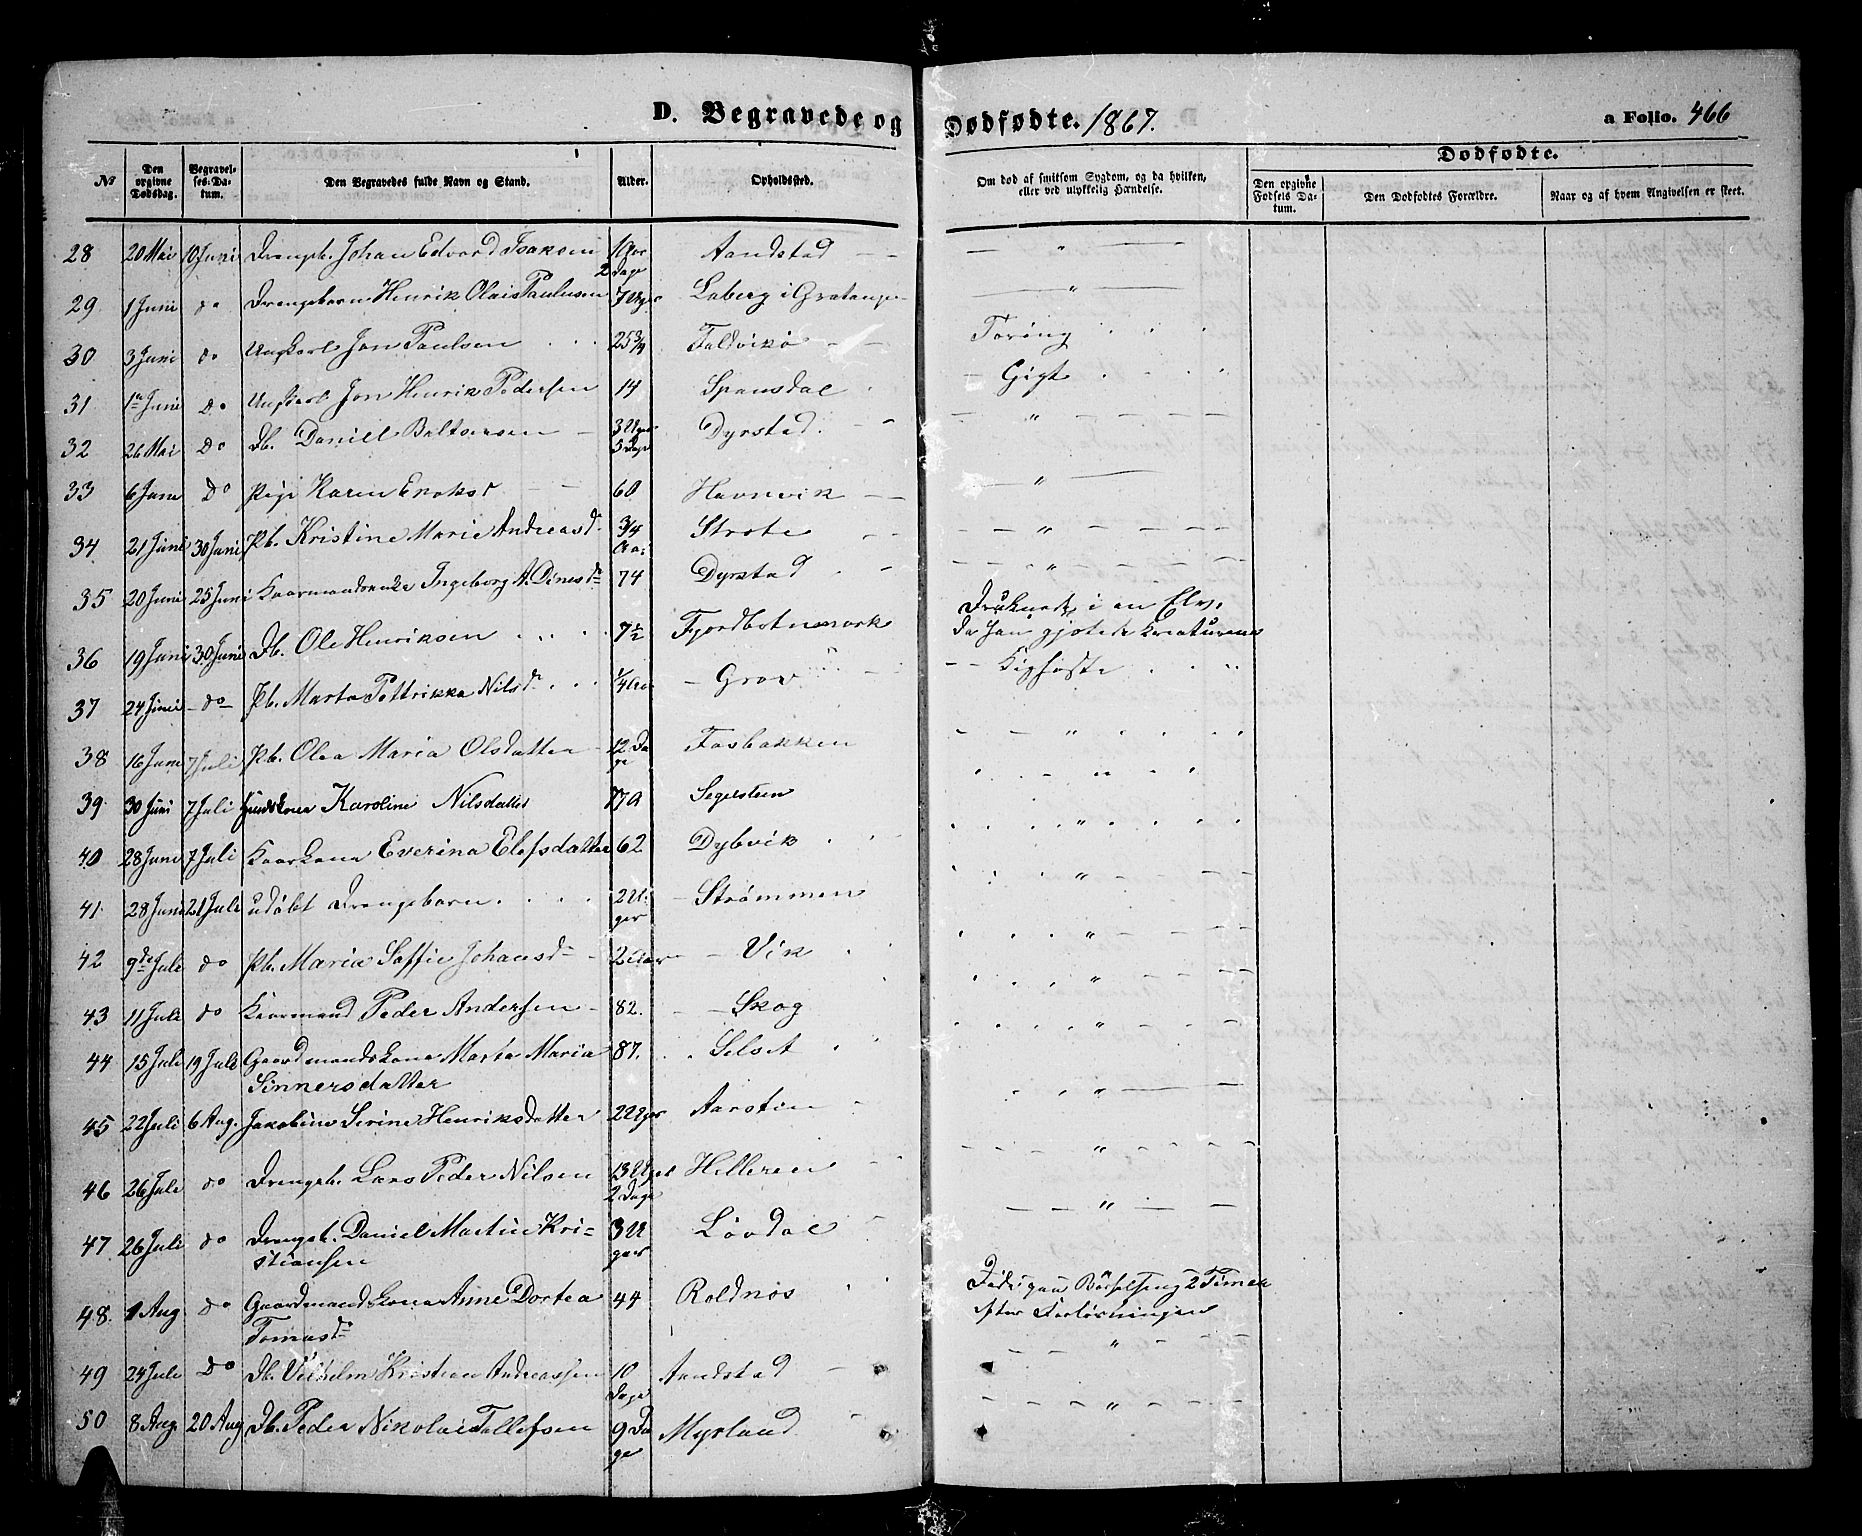 D. Begravede og Dødfødte. 1867. a Folio. 466
Dødfødte.
No Den opgivne Dødsdag. Begravelses-Datum. Den Begravedes fulde Navn og Stand. Alder. Opholdssted. Om død af smitsom Sygdom, og da hvilken, eller ved ulykkelig Hændelse. Den opgivne Fødsels Datum. Den Dødfødtes Forældre. Naar og af hvem Angivelsen er skeet.
28 20 Mai 10 Juni Drengeb. Johan Edvard Isaksen 1 Aar 2 Dage Aandstad — " —
29 1 Juni do Drengebarn Henrik Olais Paulusen 7 Uger Laberg i Gratangen — " —
30 3 Juni do Ungkarl Jon Paulsen 25 3/4 Foldvik Tæring
31 1 Juni Do Ungkarl Jon Henrik Pedersen 14 Spansdal — Gigt
32 26 Mai Do Db. Daniel Baltsersen 3 Uger 5 Dage Dyrstad. — " —
33 6 Juni Do Pige Karen Enoksd 60 Havnvik — " —
34 21 Juni 30 Juni Pb. Kristine Marie Andreasd. 3/4 Aar Strøte — " —
35 20 Juni 25 Juni Kaarmandsenke Ingeborg A. Dinesdr 74 Dyrstad — " —
36 19 Juni 30 Juni Db. Ole Henriksen 7 1/2 Fjordbotnmark Druknede i en Elv, da han gjætede Kreaturene
37 24 Juni do Pb. Marta Pettrikka Nilsdr 1/4 Aar Grov Kighoste
38 16 Juni 7 Juli Pb. Olea Maria Olsdatter 12 Dage Fosbakken "
39 30 Juni 7 Juli Karoline Nilsdatter Segelsteen "
40 28 Juni 7 Juli Kaarkona Everina Elefsdatter 62 Dybvik "
41 28 Juni 21 Juli udøbt Drengebarn 2 Uger Strømmen "
42 9de Juli do Pb. Maria Soffie Johansdr 2 Aar Vik "
43 11 Juli do Kaarmand Peder Andersen 82. Skog "
44 15 Juli 19 Juli Gaardmandskona Marta Maria 87. Selset "
Sinnersdatter
45 22 Juli 6 Aug. Jakobine Serine Henriksdatter 2 Uger Aarstein "
46 26 Juli do Drengeb. Lars Peder Nilsen 13 Uger 2 Dage Hilleren "
47 26 Juli do Drengeb. Daniel Martin Kri- 3 Uger Løvdal "
stiansen
48. 1 Aug do Gaardmandskona Anne Dortea 44 Roldnøs Døde paa Barselseng 2 Timer
Tomasdr efter Forløsningen
49 24 Juli Do Db. Vilhelm Kristian Andreassen 10 Dage Aandstad "
50 8 Aug. 20 Aug Db. Peder Nikolai Tollefsen 9 Dage Myrland "